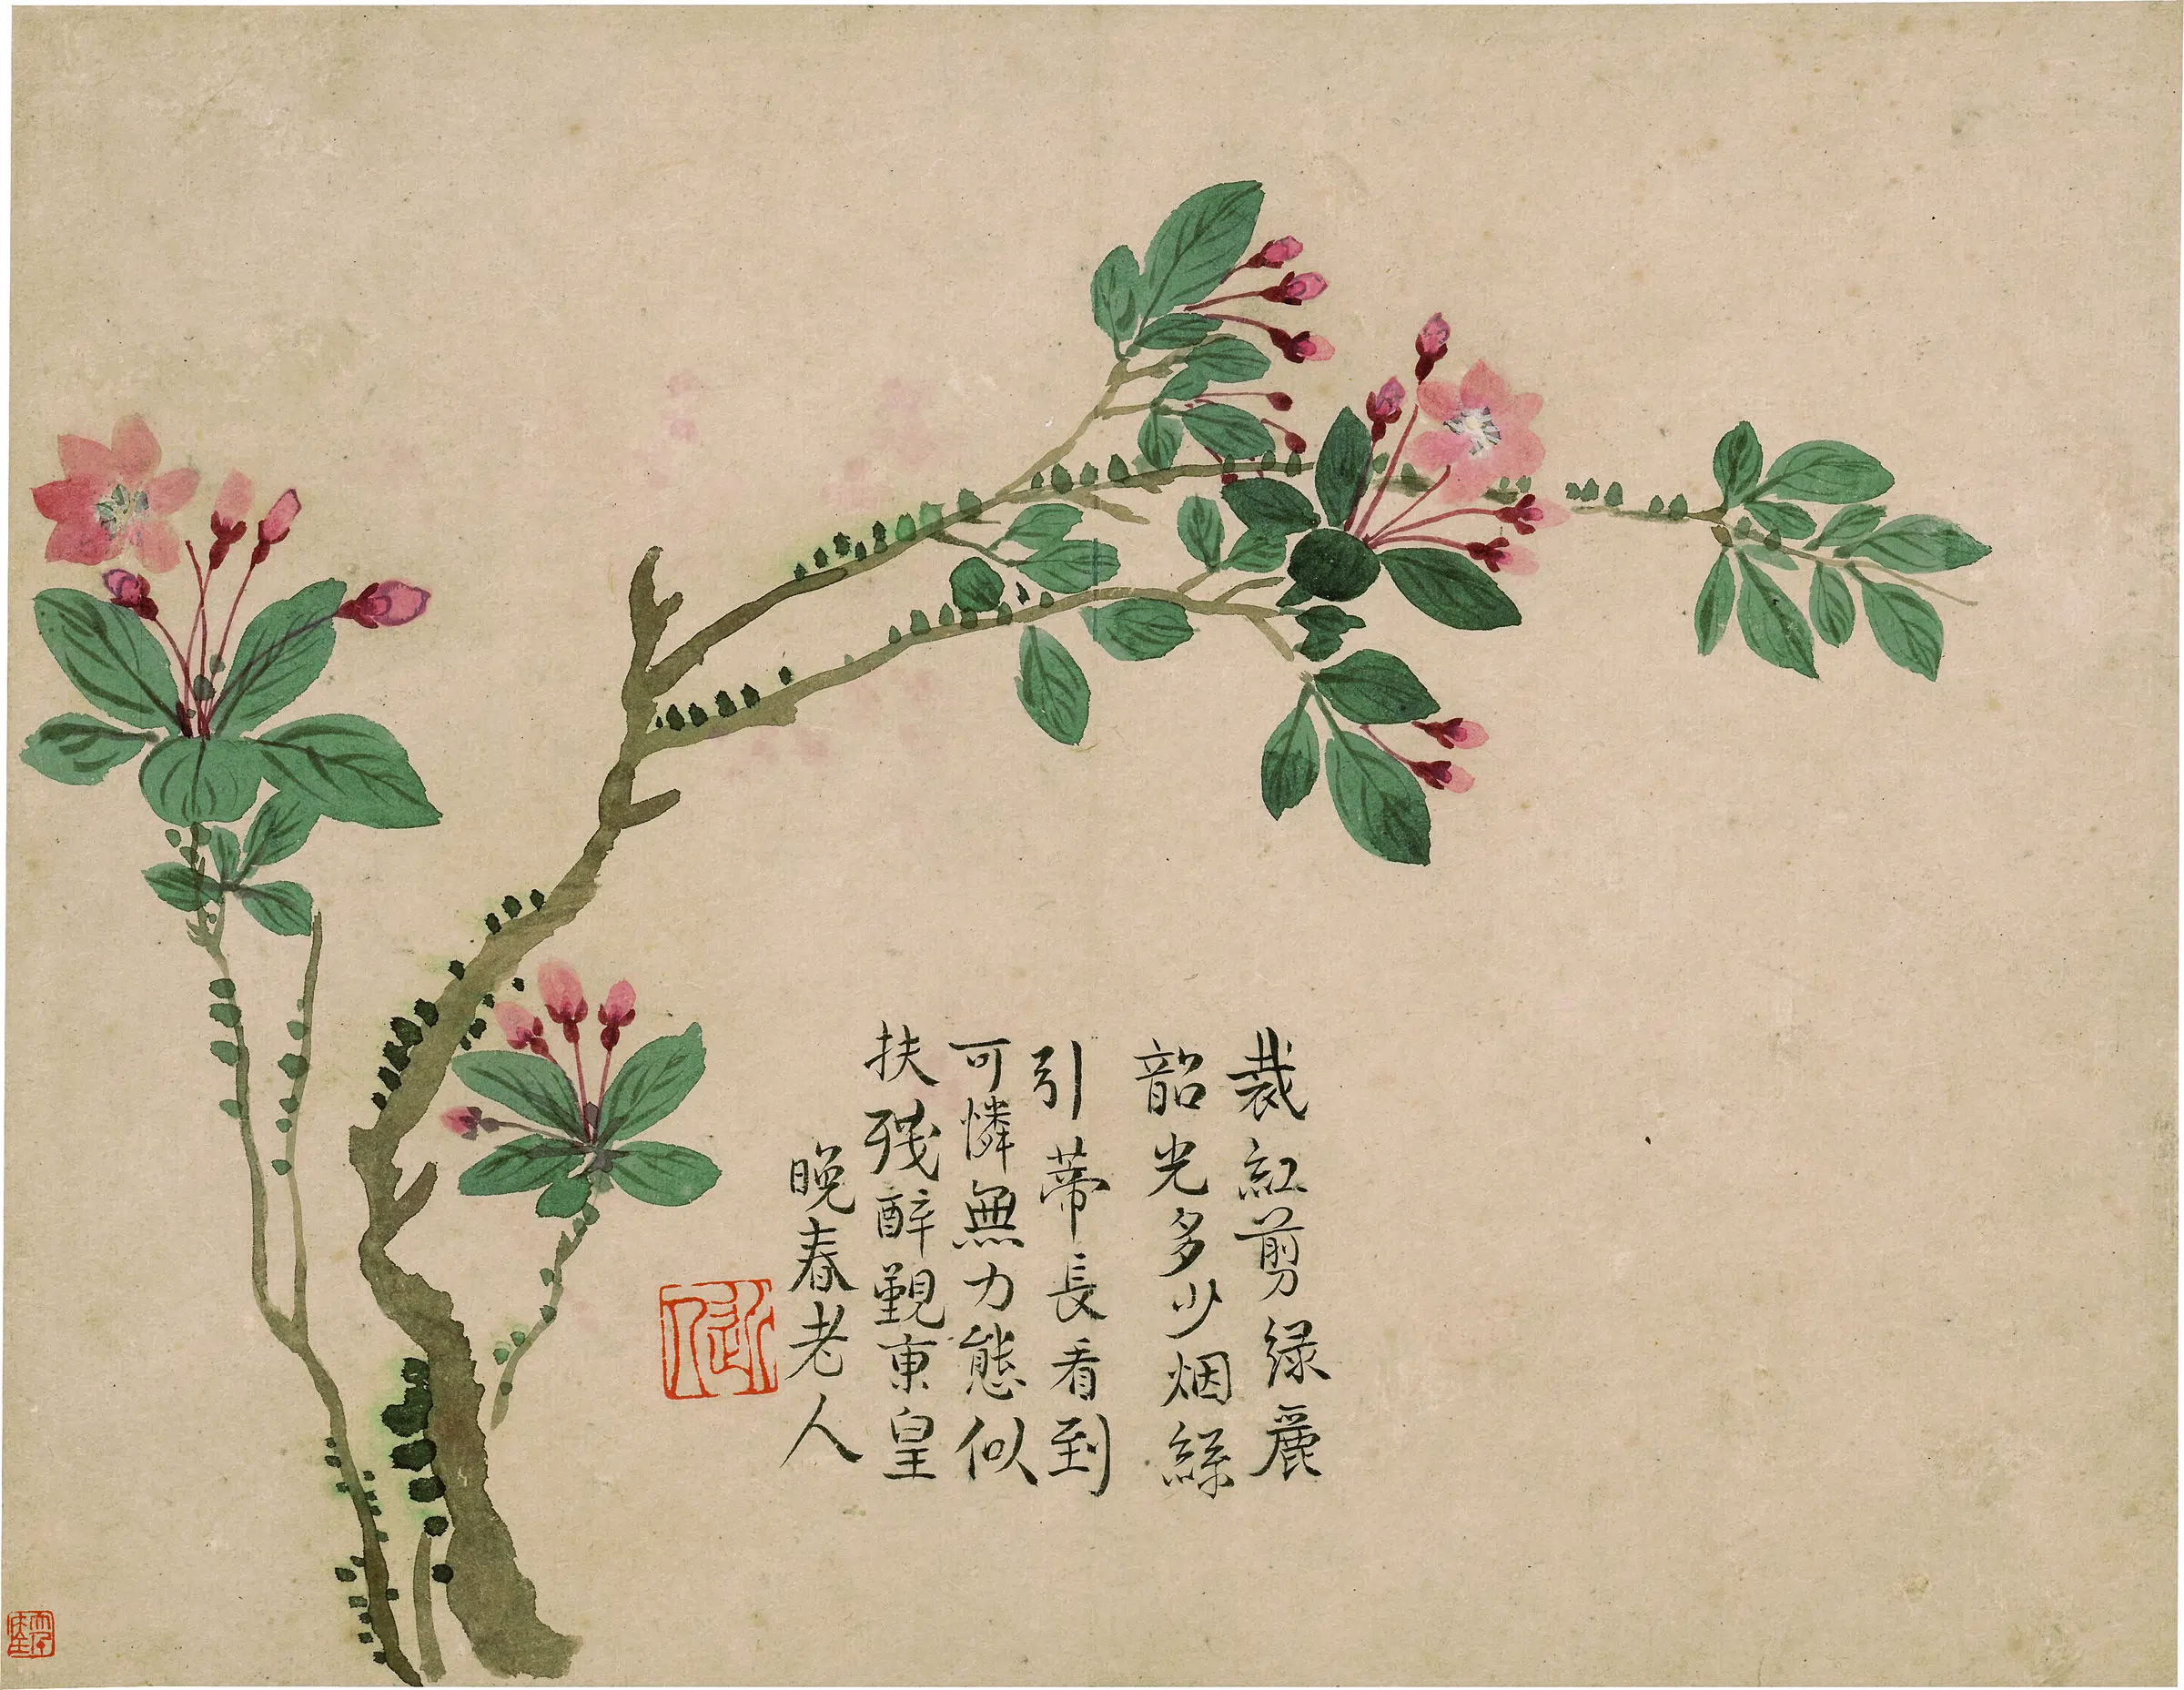 裁紅剪緑麗
韶光多少烟絲
引蒂長看到
可憐無力態似
扶殘醉觐東皇
晚春老人